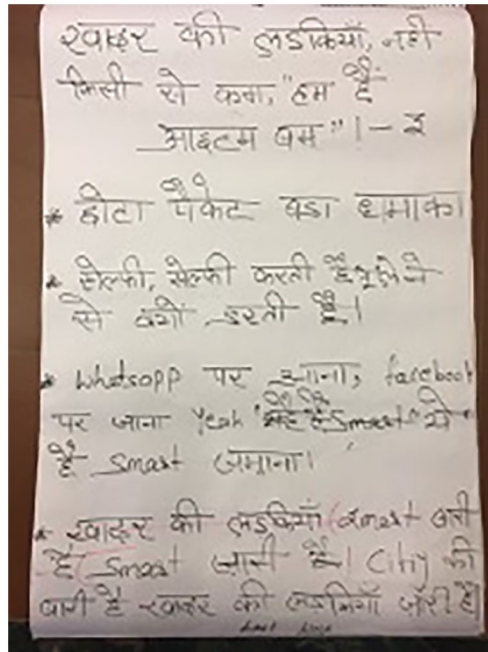 खादर की लड़कियाँ, नही
किसी से कम, "हम हैं
आइटम बम"।- २
* छोटा पैकेट बडा धमाका
* सेल्फी, सेल्फी करती है, लेने
से क्यों डरती है।
* Whatsapp पर आना, facebook
पर जाना Yeah है Smart ये
है Smart जमाना।
* खादर की लडकियाँ Smart बनी
है Smart नारी है। City की
बारी है खादर की लडकियाँ